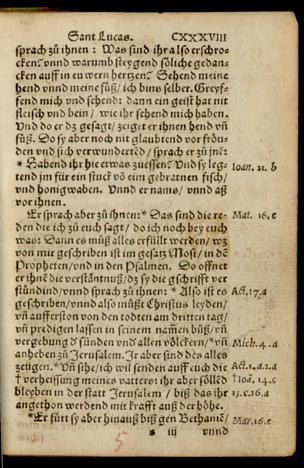 Sant Lucas. CXXXVIII
sprach zů ihnen: Was sind ihr also erschro-
cken? vnnd warumb steygend söliche gedan-
cken auff in euwern hertzen? Sehend meine
hend vnnd meine füß/ ich bins selber. Greyf-
fend mich vnd sehend: dann ein geist hat nit
fleisch vnd bein/ wie ihr sehend mich haben.
Vnd do er dz gesagt/ zeiget er ihnen hend vñ
füß. Do sy aber noch nit glaubtend vor fröu-
den vnd sich verwundertẽd/ sprach er zů inẽ:
* Habend ihr hie etwas zuessen? Vnd sy leg- Ioan. 21. b
tend jm für ein stuck vō eim gebratnen fisch/
vnd honigwaben. Vnnd er nams/ vnnd aß
vor ihnen.
Er sprach aber zů ihnen: * Das sind die re- Mat. 16. c
den die ich zů euch sagt/ do ich noch bey euch
was: Dann es můß alles erfüllt werden/ wz
von mir geschriben ist im gesatz Mosi/ in dē
Propheten/ vnd in den Psalmen. Do öffnet
er ihnē die verstäntnuß/ dz sy die gschrifft ver
stündind/ vnnd sprach zů ihnen: * Also ist es Act. 17. a
geschriben/ vnnd also můßte Christus leyden/
vñ aufferston von den todten am dritten tag/
vñ predigen lassen in seinem namẽn bůß/ vñ
vergebung d̕ sünden vnd̕ allen völckern/ * vñ Mich. 4. a
anheben zů Jerusalem. Ir aber sind des alles
zeügen. * Vñ sihe/ ich wil senden auff euch die Act. 1. a. 2. a
† verheissung meines vatters: ihr aber söllēd † Ioā. 14. c
bleyben in der statt Jerusalem/ biß das ihr 15. c. 16. a
angethon werdend mit krafft auß der höhe.
* Er fürt sy aber hinauß biß gen Bethanië/ Mar. 16. c
s iij vnnd
5